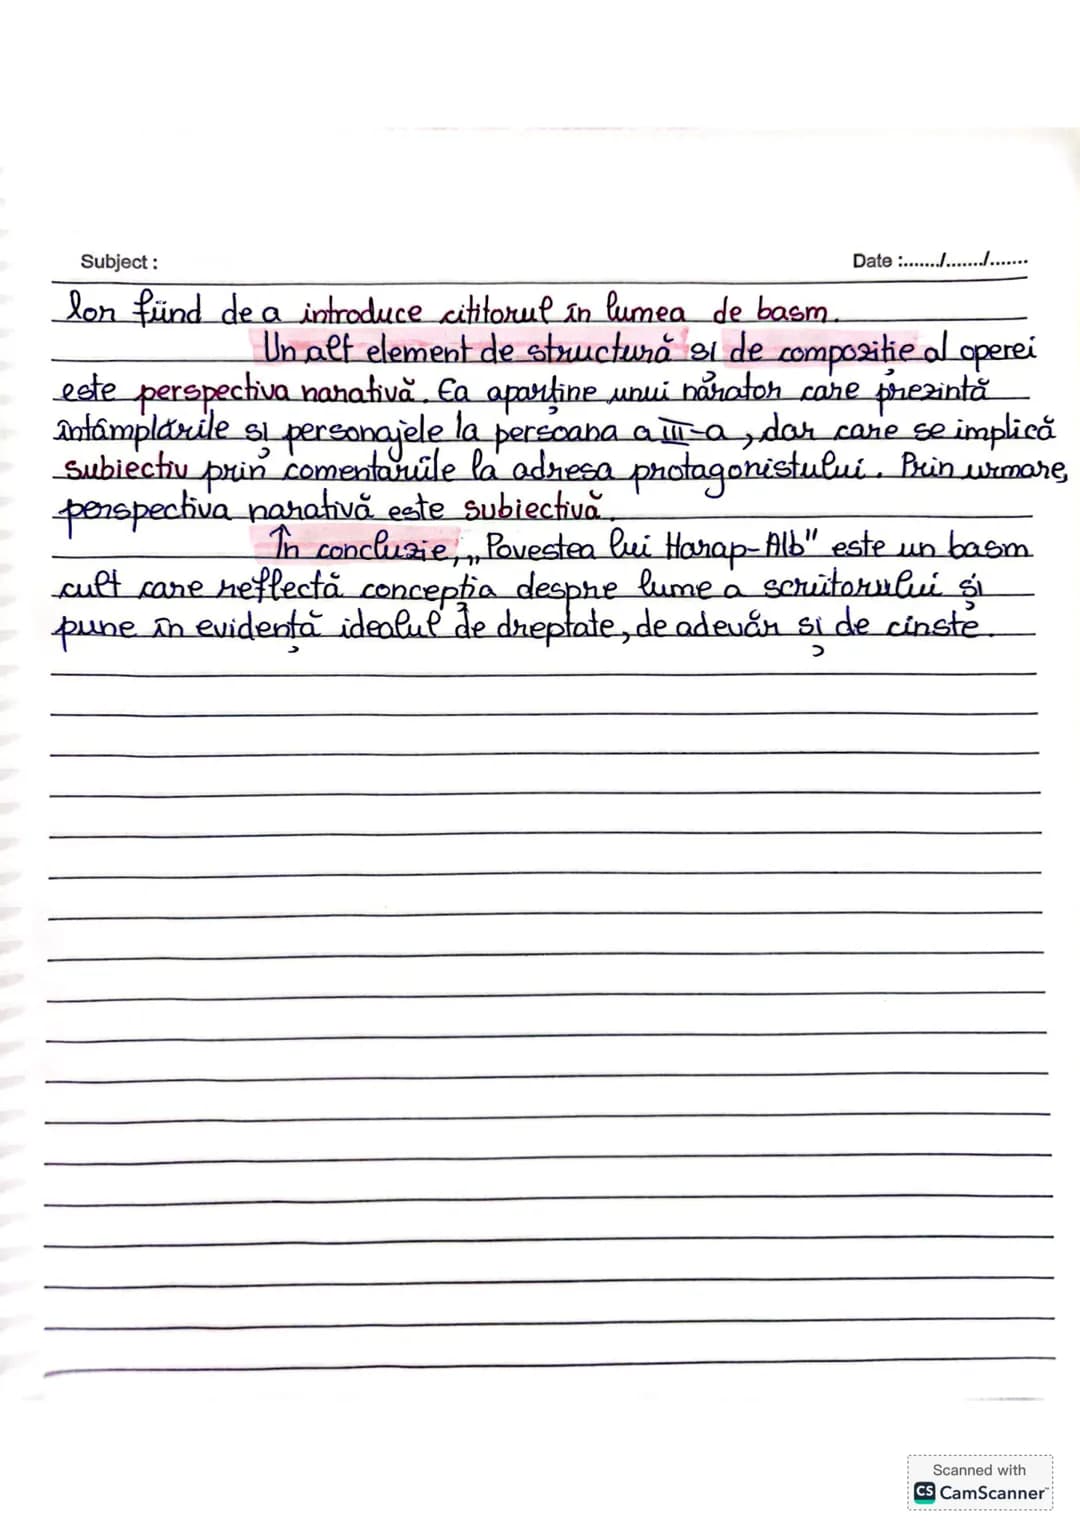 Subject :
Date :......./......./.......
lor fiind de a introduce cititorul în lumea de basm.
Un alt element de structură și de compoziție al operei
este perspectiva narativă. Ea aparține unui narator care prezintă
întâmplările și personajele la persoana a III-a, dar care se implică
subiectiv prin comentariile la adresa protagonistului. Prin urmare,
perspectiva narativă este subiectivă.
În concluzie, „Povestea lui Harap-Alb" este un basm
cult care reflectă concepția despre lume a scriitorului și
pune în evidență idealul de dreptate, de adevăr și de cinste.
Scanned with
CS CamScanner